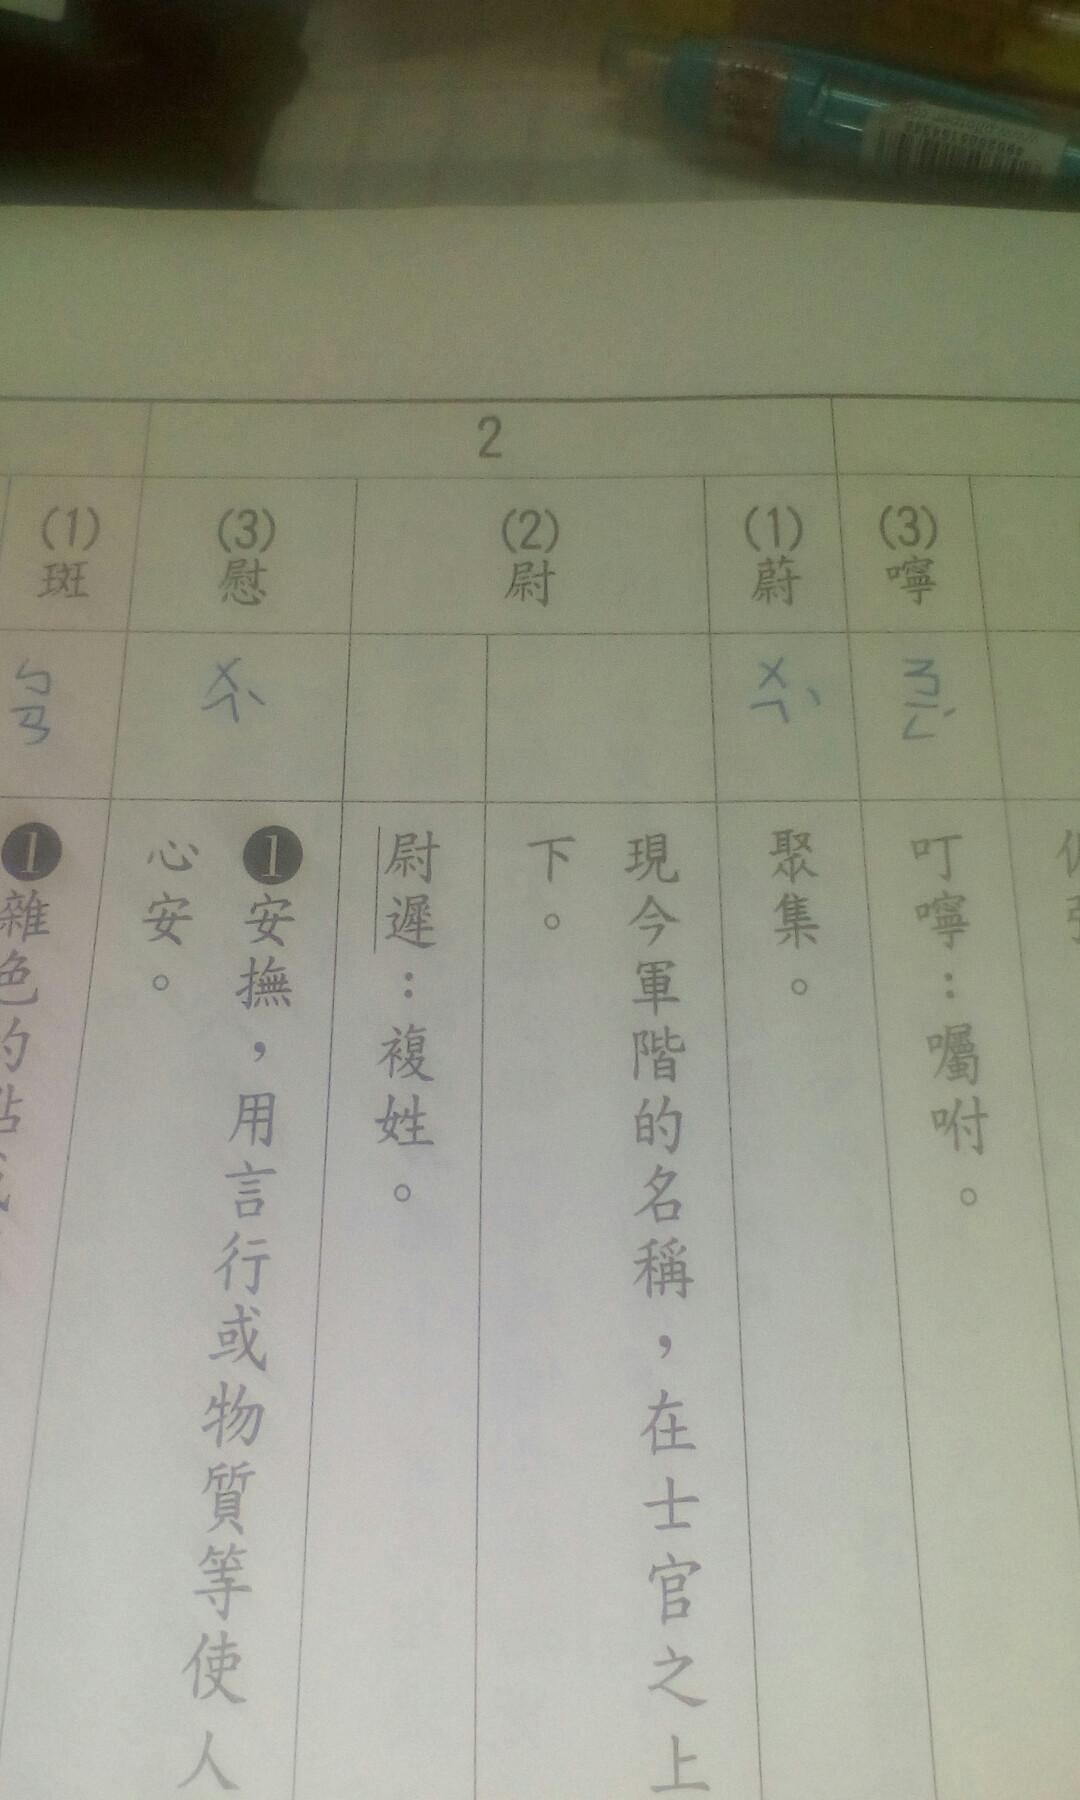 2
(3)
嚀
ㄋㄧㄥˊ
叮嚀：囑咐。
(1)
蔚
ㄨㄟˋ
聚集。
(2)
尉
現今軍階的名稱，在士官之上
下。
尉遲：複姓。
(3)
慰
ㄨㄟˋ
❶安撫，用言行或物質等使人
心安。
(1)
斑
ㄅㄢ
❶雜色的點或